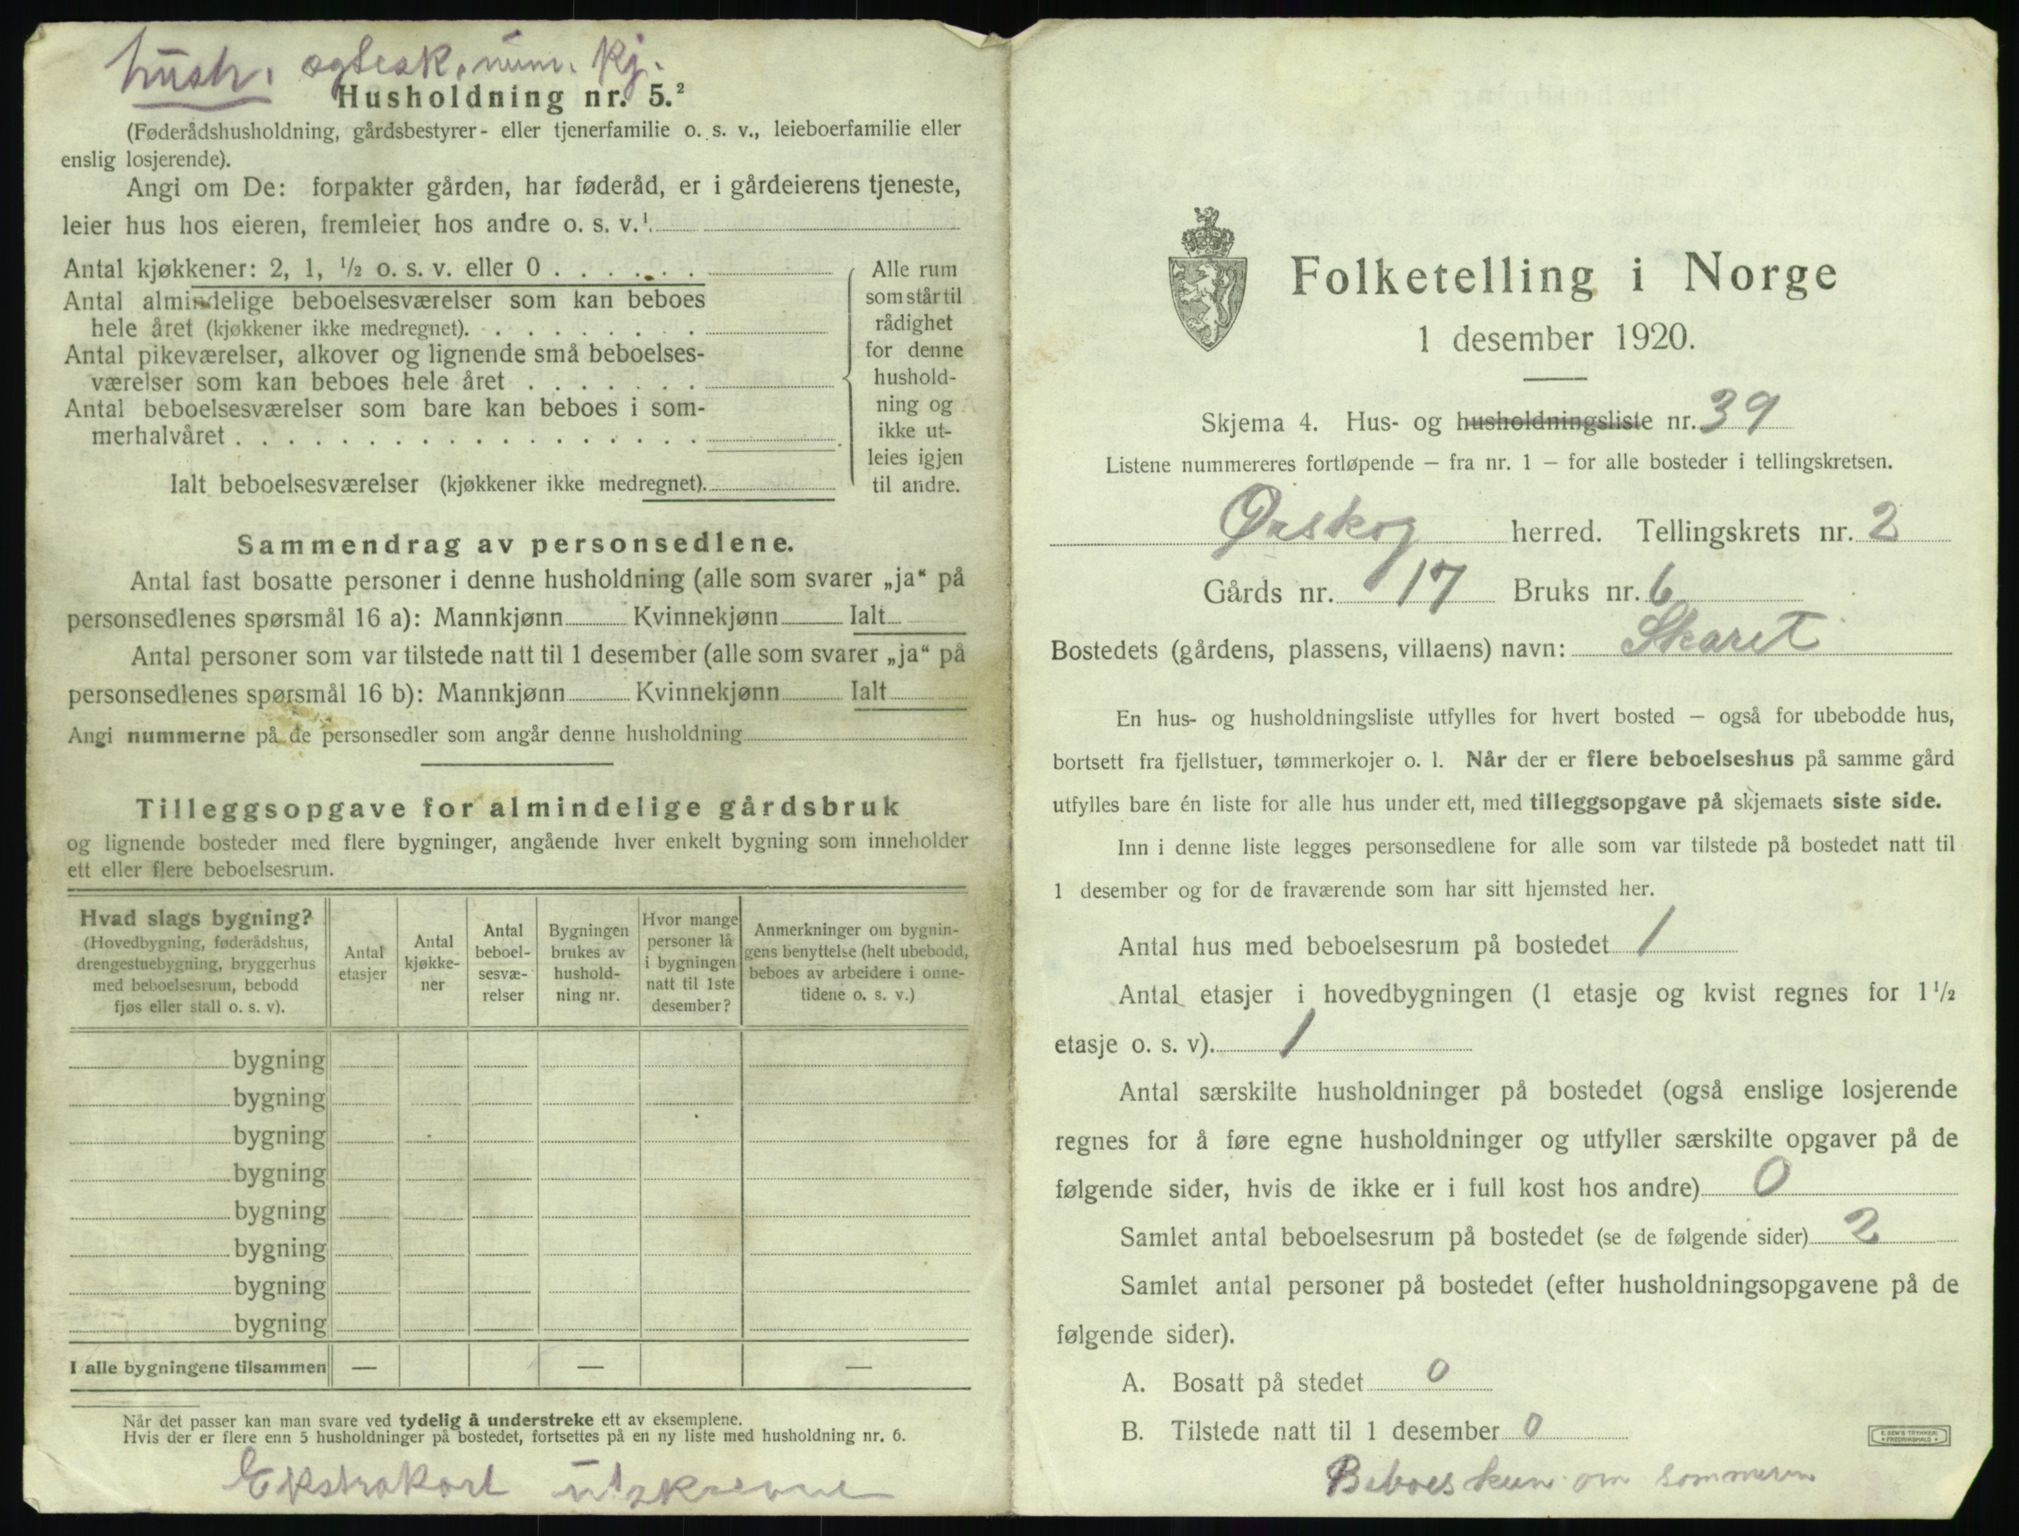 hush. ogtesk. num. kj.
Husholdning nr. 5.²
(Føderådshusholdning, gårdsbestyrer- eller tjenerfamilie o. s. v., leieboerfamilie eller
enslig losjerende).
Angi om De: forpakter gården, har føderåd, er i gårdeierens tjeneste,
leier hus hos eieren, fremleier hos andre o. s. v.¹
Antal kjøkkener: 2, 1, ½ o. s. v. eller 0 . . . . . .
Antal almindelige beboelsesværelser som kan beboes
hele året (kjøkkener ikke medregnet). . . . . . . . .
Antal pikeværelser, alkover og lignende små beboelses-
værelser som kan beboes hele året . . . . . . .
Antal beboelsesværelser som bare kan beboes i som-
merhalvåret . . . . . . . . . . . . . . . . . .
Ialt beboelsesværelser (kjøkkener ikke medregnet).
Alle rum
som står til
rådighet
for denne
hushold-
ning og
ikke ut-
leies igjen
til andre.
Sammendrag av personsedlene.
Antal fast bosatte personer i denne husholdning (alle som svarer „ja“ på
personsedlenes spørsmål 16 a): Mannkjønn Kvinnekjønn Ialt
Antal personer som var tilstede natt til 1 desember (alle som svarer „ja“ på
personsedlenes spørsmål 16 b): Mannkjønn Kvinnekjønn Ialt
Angi nummerne på de personsedler som angår denne husholdning
Tilleggsopgave for almindelige gårdsbruk
og lignende bosteder med flere bygninger, angående hver enkelt bygning som inneholder
ett eller flere beboelsesrum.
Hvad slags bygning?
(Hovedbygning, føderådshus,
drengestuebygning, bryggerhus
med beboelsesrum, bebodd
fjøs eller stall o. s. v).
Antal
etasjer
Antal
kjøkke-
ner
Antal
beboel-
sesvæ-
relser
Bygningen
brukes av
hushold-
ning nr.
Hvor mange
personer lå
i bygningen
natt til 1ste
desember?
Anmerkninger om bygnin-
gens benyttelse (helt ubebodd,
beboes av arbeidere i onne-
tidene o. s. v.)
bygning
bygning
bygning
bygning
bygning
bygning
bygning
bygning
I alle bygningene tilsammen — — —
Når det passer kan man svare ved tydelig å understreke ett av eksemplene.
Hvis der er flere enn 5 husholdninger på bostedet, fortsettes på en ny liste med husholdning nr. 6.
Ekstrakort utskrevne
Folketelling i Norge
1 desember 1920.
Skjema 4. Hus- og husholdningsliste nr. 39
Listene nummereres fortløpende – fra nr. 1 – for alle bosteder i tellingskretsen.
Ørskog herred. Tellingskrets nr. 2
Gårds nr. 17 Bruks nr. 6
Bostedets (gårdens, plassens, villaens) navn: Skaret
En hus- og husholdningsliste utfylles for hvert bosted – også for ubebodde hus,
bortsett fra fjellstuer, tømmerkojer o. l. Når der er flere beboelseshus på samme gård
utfylles bare én liste for alle hus under ett, med tilleggsopgave på skjemaets siste side.
Inn i denne liste legges personsedlene for alle som var tilstede på bostedet natt til
1 desember og for de fraværende som har sitt hjemsted her.
Antal hus med beboelsesrum på bostedet 1
Antal etasjer i hovedbygningen (1 etasje og kvist regnes for 1 ½
etasje o. s. v). 1
Antal særskilte husholdninger på bostedet (også enslige losjerende
regnes for å føre egne husholdninger og utfyller særskilte opgaver på de
følgende sider, hvis de ikke er i full kost hos andre) 0
Samlet antal beboelsesrum på bostedet (se de følgende sider) 2
Samlet antal personer på bostedet (efter husholdningsopgavene på de
følgende sider).
A. Bosatt på stedet 0
B. Tilstede natt til 1 desember 0
Beboes kun om sommeren